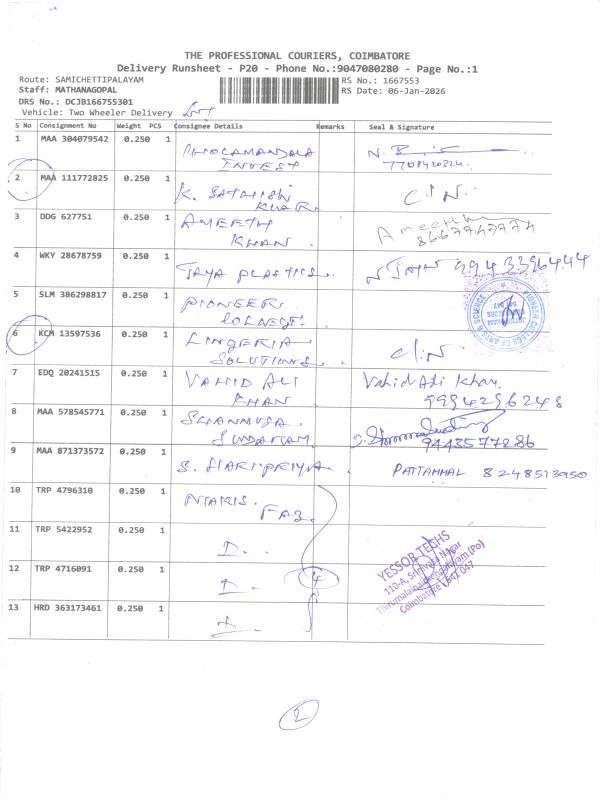 THE PROFESSIONAL COURIERS, COIMBATORE
Delivery Runsheet - P20 - Phone No.:9047080280 - Page No.:1
Route: SAMICHETTIPALAYAM
RS No.: 1667553
Staff: MATHANAGOPAL
RS Date: 06-Jan-2026
DRS No.: DCJB166755301
Vehicle: Two Wheeler Delivery
S No Consignment No Weight PCS Consignee Details Remarks Seal & Signature
1 MAA 304079542 0.250 1 CHOLAMANDALA
INVEST
2 MAA 111772825 0.250 1 K. SATHISH
KUAR. C.I.N.
3 DDG 627751 0.250 1 AMEETH
KHAN. Ameeth
8667747774
4 WKY 28678759 0.250 1 JAYA PLASTICS. 9943396444
5 SLM 386298817 0.250 1 PIONEER
COLLEGE.
PIONEER COLLEGE OF ARTS & SCIENCE
6 KCM 13597536 0.250 1 LINGERIA
SOLUTIONS. C.I.N
7 EDQ 20241515 0.250 1 VAHID ALI
KHAN Vahid Ali Khan.
9994296248
8 MAA 578545771 0.250 1 SHANMUGA
SUNDARAM. 9443577286
9 MAA 871373572 0.250 1 S. HARIPRIYA. PATTAMMAL 8248513950
10 TRP 4796310 0.250 1
FAB.
11 TRP 5422952 0.250 1 D.
12 TRP 4716091 0.250 1 D. 4
13 HRD 363173461 0.250 1 D.
YESSOR TECHS
110-A, Srinivasa Nagar
Thirumalainaickenpalayam (Po)
Coimbatore - 641 047
2